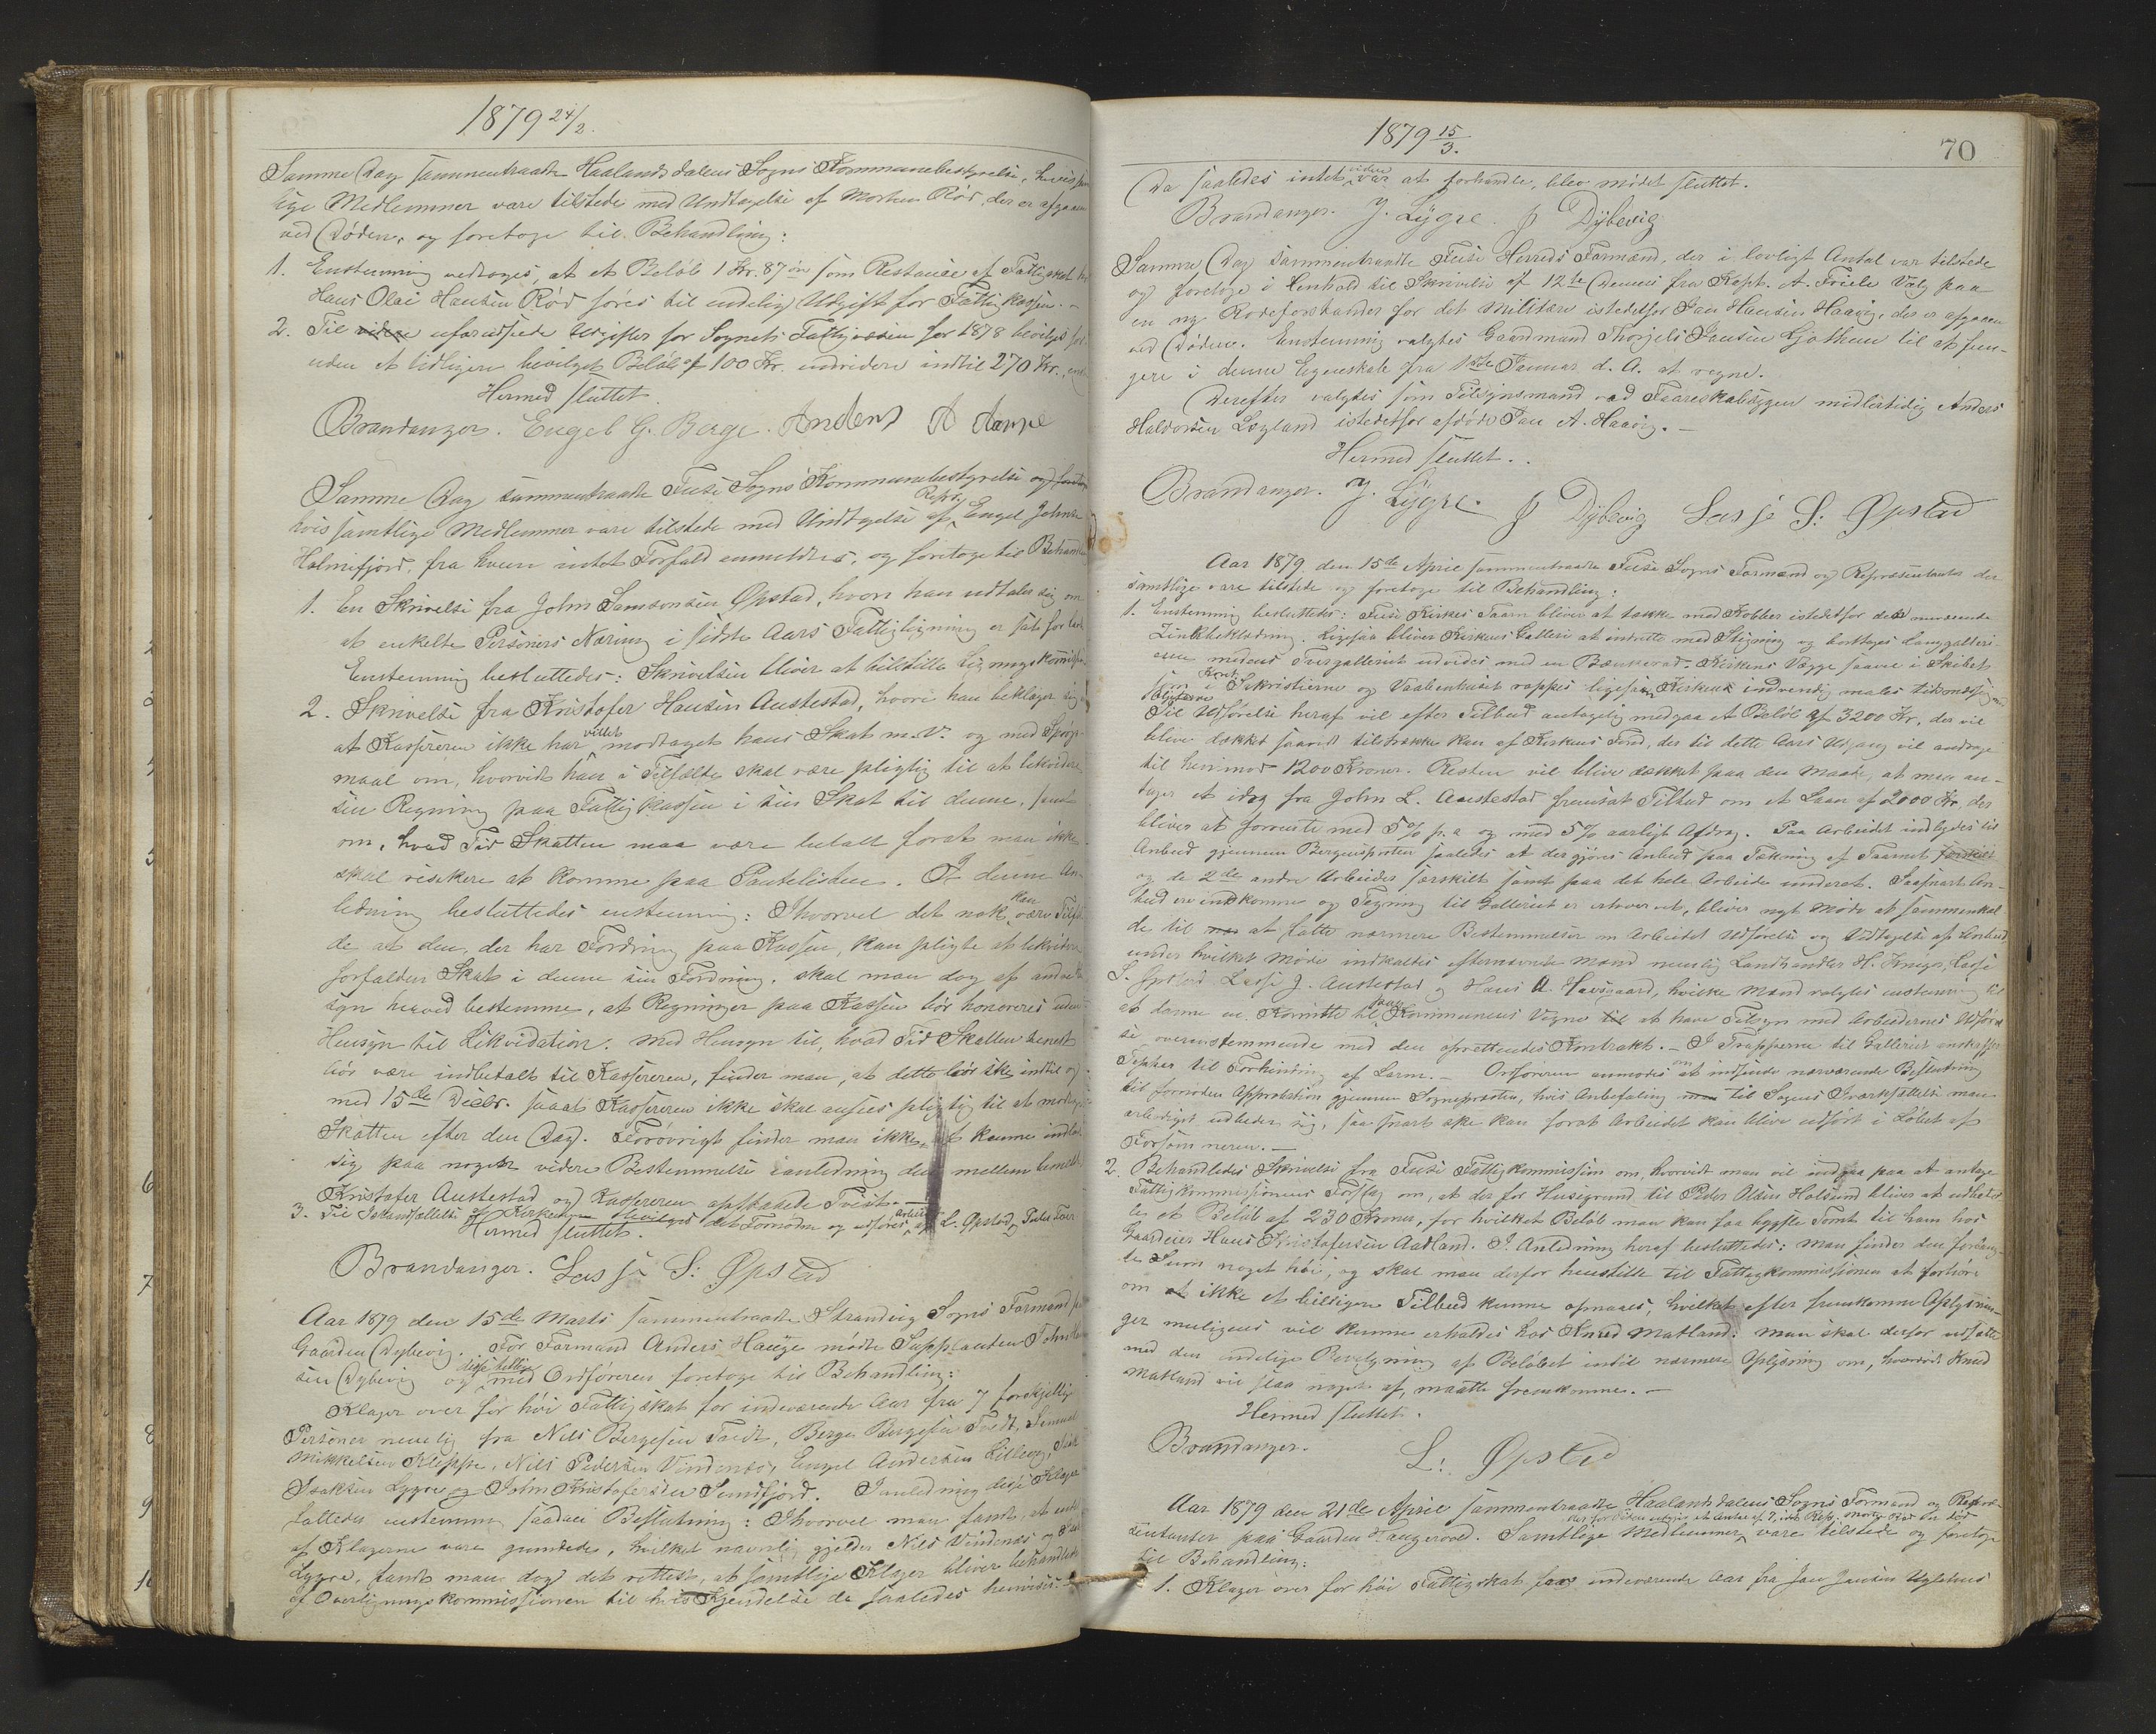 1879 24/2.
Samme Dag sammentraadte Haalandsdalens Sogns Kommunebestyrelse, hvis sam
lige Medlemmer vare tilstede med Undtagelse af Morten Rød, der er afgaaen
ved Døden, og foretoge til Behandling:
1. Enstemmig vedtages, at et Beløb 1 Kr. 87 øre som Restance af Fattigskat
Hans Olai Hansen Rød føres til endelig Udgift for Fattigkassen. -
2. Til videre uforudseede Udgifter for Sognets Fattigvæsen for 1878 bevilges
uden et tidligere bevilget Beløb af 100 Kr. endvidere indtil 270 Kr.
Hermed sluttet.
Brandanger. Engel G. Berge. Anders A
Samme Dag sammentraadte Fuse Sogns Kommunebestyrelse og
hvis samtlige Medlemmer vare tilstede med Undtagelse af Repr. Engel Johns
Holmefjord, fra hvem intet Forfald anmeldtes, og foretoge til Behand
1. En Skrivelse fra John Samsonsen Øpstad, hvori han udtaler sig om
at enkelte Personers Næring i sidste Aars Fattigligning er sat for lavt
Enstemmig besluttedes: Skrivelsen bliver at tilstille Ligningskommis
2. Skrivelse fra Kristofer Hansen Austestad, hvori han beklager sig
at Kassereren ikke har villet modtaget hans Skat m. V. og med Spørgs-
maal om, hvorvidt han i Tilfælde skal være pligtig til at likvidere
sin Regning paa Fattigkassen i sin Skat til denne, samt
om, hvad Tid Skatten maa være betalt forat man ikke
skal risikere at komme paa Pantelisten. I denne An-
ledning besluttedes enstemmig: Ihvorvel det nok kan være Tilfæl
de at den, der har Fordring paa Kassen, kan pligte at likvidere
forfalden Skat i denne sin Fordring, skal man dog af andre
syn herved bestemme, at Regninger paa Kassen bør honoreres uden
Hensyn til Likvidation. Med Hensyn til, hvad Tid Skatten senest
bør være indbetalt til Kassereren, finder man, at dette bør ske indtil og
med 15de Decbr. saaat Kassereren ikke skal ansees pligtig til at modtage
Skatten efter den Dag. Forøvrigt finder man ikke at kunne indlade
sig paa nogen videre Bestemmelse i anledning den mellem bemeldte
Kristofer Austestad og Kassereren opstaaede Tvist.
3. Til Istandsættelse af Kirkeveien bevilges det Fornødne og udføres Arbeidet af L. Øpstad
Hermed sluttet.
Brandanger. Lasse S: Øpstad
Aar 1879 den 15de Marts sammentraadte Strandvig Sogns Formænd paa
Gaarden Dybevig. For Formand Anders Hauge mødte Supplanten John
sen Dybevig og disse tillige med Ordføreren foretoge til Behandling:
Klager over for høi Fattigskat for indeværende Aar fra 7 forskjellige
Personer nemlig fra Nils Bergesen Tvedt, Berge Bergesen Tvedt, Simon
Mikkelsen Kleppe, Nils Pedersen Vindenes, Engel Andersen Lillevig,
Isaksen Lygre og John Kristofersen Sundfjord. I anledning disse Klager
fattedes enstemmig saadan Beslutning: Ihvorvel man fandt, at endel
af Klagerne vare grundede, hvilket navnlig gjelder Nils Vindenes og
Lygre, fandt man dog det rettest, at samtlige Klager bliver behandlede
af Overligningskommissionen til hvis Kjendelse de saaledes henvises.
1879 15/3.
70
Da saaledes intet videre var at forhandle, blev mødet sluttet.
Brandanger. J. Lygre. J Dybevig
Samme Dag sammentraadte Fuse Herreds Formænd, der i lovligt Antal var tilstede
og foretoge i Henhold til Skrivelse af 12te Dennes fra Kapt. A. Friele Valg paa
en ny Rodeforstander for det Militære istedetfor Jan Hansen Haavig, der er afgaaen
ved Døden. Enstemmig valgtes Gaardmand Thorgils Hansen Gjøthun til at fun-
gere i denne Egenskab fra 1ste Januar d. A. at regne.
Derefter valgtes som Tilsynsmand ved Faareskabsygen midlertidig Anders
Haldorsen Lægland istedetfor afdøde Jan A. Haavig. -
Hermed sluttet.
Brandanger. J. Lygre. J Dybevig Lasse S: Øpstad
Aar 1879 den 15de April sammentraadte Fuse Sogns Formænd og Repræsentanter der
samtlige vare tilstede og foretoge til Behandling:
1. Enstemmig besluttedes: Fuse Kirkes Taarn bliver at tække med Kobber istedetfor den nuværende
Zinkbeklædning. Ligesaa bliver Kirkens Galleri at indrette med Stigning og borttages Langgalleri-
erne medens Tvergalleriet udvides med en Bænkerad. Kirkens Vægge saavel i Skibet
som i Koret Sakristierne og Vaabenhuset rappes ligesaa Kirken indvendig males tidsmæssig
Til Udførelse heraf vil efter Tilbud antagelig medgaa et Beløb af 3200 Kr, der vil
blive dækket saavidt tilstrække kan af Kirkens Fond, der til dette Aars Udgang vil andrage
til henimod 1200 Kroner. Resten vil blive dækket paa den Maade, at man an-
tager et idag fra John L. Austestad fremsat Tilbud om et Laan af 2000 Kr, der
bliver at forrente med 5% p. a og med 5% aarligt Afdrag. Paa Arbeidet indbydes til
Anbud gjennem Bergensposten saaledes at der gjøres Anbud paa Tækning af Taarnet særskilt
og de 2de andre Arbeider særskilt samt paa det hele Arbeide underet. Saasnart An-
bud ere indkomne og Tegning til Galleriet er erhvervet, bliver nyt Møde at sammenkal
de til at fatte nærmere Bestemmelser om Arbeidet Udførelse og Vedtagelse af Anbud
under hvilket Møde indkaldes efternævnte Mænd nemlig Landhandler H. Kniga, Lasse
S. Øpstad Lasse J. Austestad og Hans A. Havsgaard, hvilke Mænd valgtes enstemmig til
at danne en Komitte til paa Kommunens Vegne at have Tilsyn med Arbeidernes Udførel
se overensstemmende med den oprettendes Kontrakt. - I Trapperne til Galleriet anskaffes
Tepper til Forhindring af Larm. - Ordføreren anmodes om at indsende nærværende Beslutning
til fornøden Approbation gjennem Sogneprestet, hvis Anbefaling til Sagens Iværksættelse man
ærbødigst udbeder sig, saa snart ske kan forat Arbeidet kan blive udført i Løbet af
Forsommeren. -
2. Behandledes Skrivelse fra Fuse Fattigkommission om, hvorvidt man vil indgaa paa at antage
Fattigkommissionens Forslag om, at der for Husegrund til Peder Olsen Holsund bliver at udbeta-
le et Beløb af 230 Kroner, for hvilket Beløb man kan faa kjøbt Tomt til ham hos
Gaardeier Hans Kristofersen Aadland. I Anledning heraf besluttedes: Man finder den forlang-
te Sum noget høi, og skal man derfor henstille til Fattigkommissionen at forhøre
om ikke et billigere Tilbud kunne opnaaes, hvilket efter fremkomne Oplysnin-
ger muligens vil kunne erholdes hos Knud Matland. Man skal derfor udsætte
med den endelige Bevilgning af Beløbet indtil nærmere Oplysning om, hvorvidt Knud
Matland vil slaa noget af, maatte fremkomme. -
Hermed sluttet.
Brandanger. L: Øpstad
Aar 1879 den 21de April sammentraadte Haalandsdalens Sogns Formænd og Repræ-
sentanter paa Gaarden Tangerød. Samtlige Medlemmer, vare tilstede og foretoge
til Behandling:
1. Klager over for høi Fattigskat for indeværende Aar fra Jan Jansen Uglehus